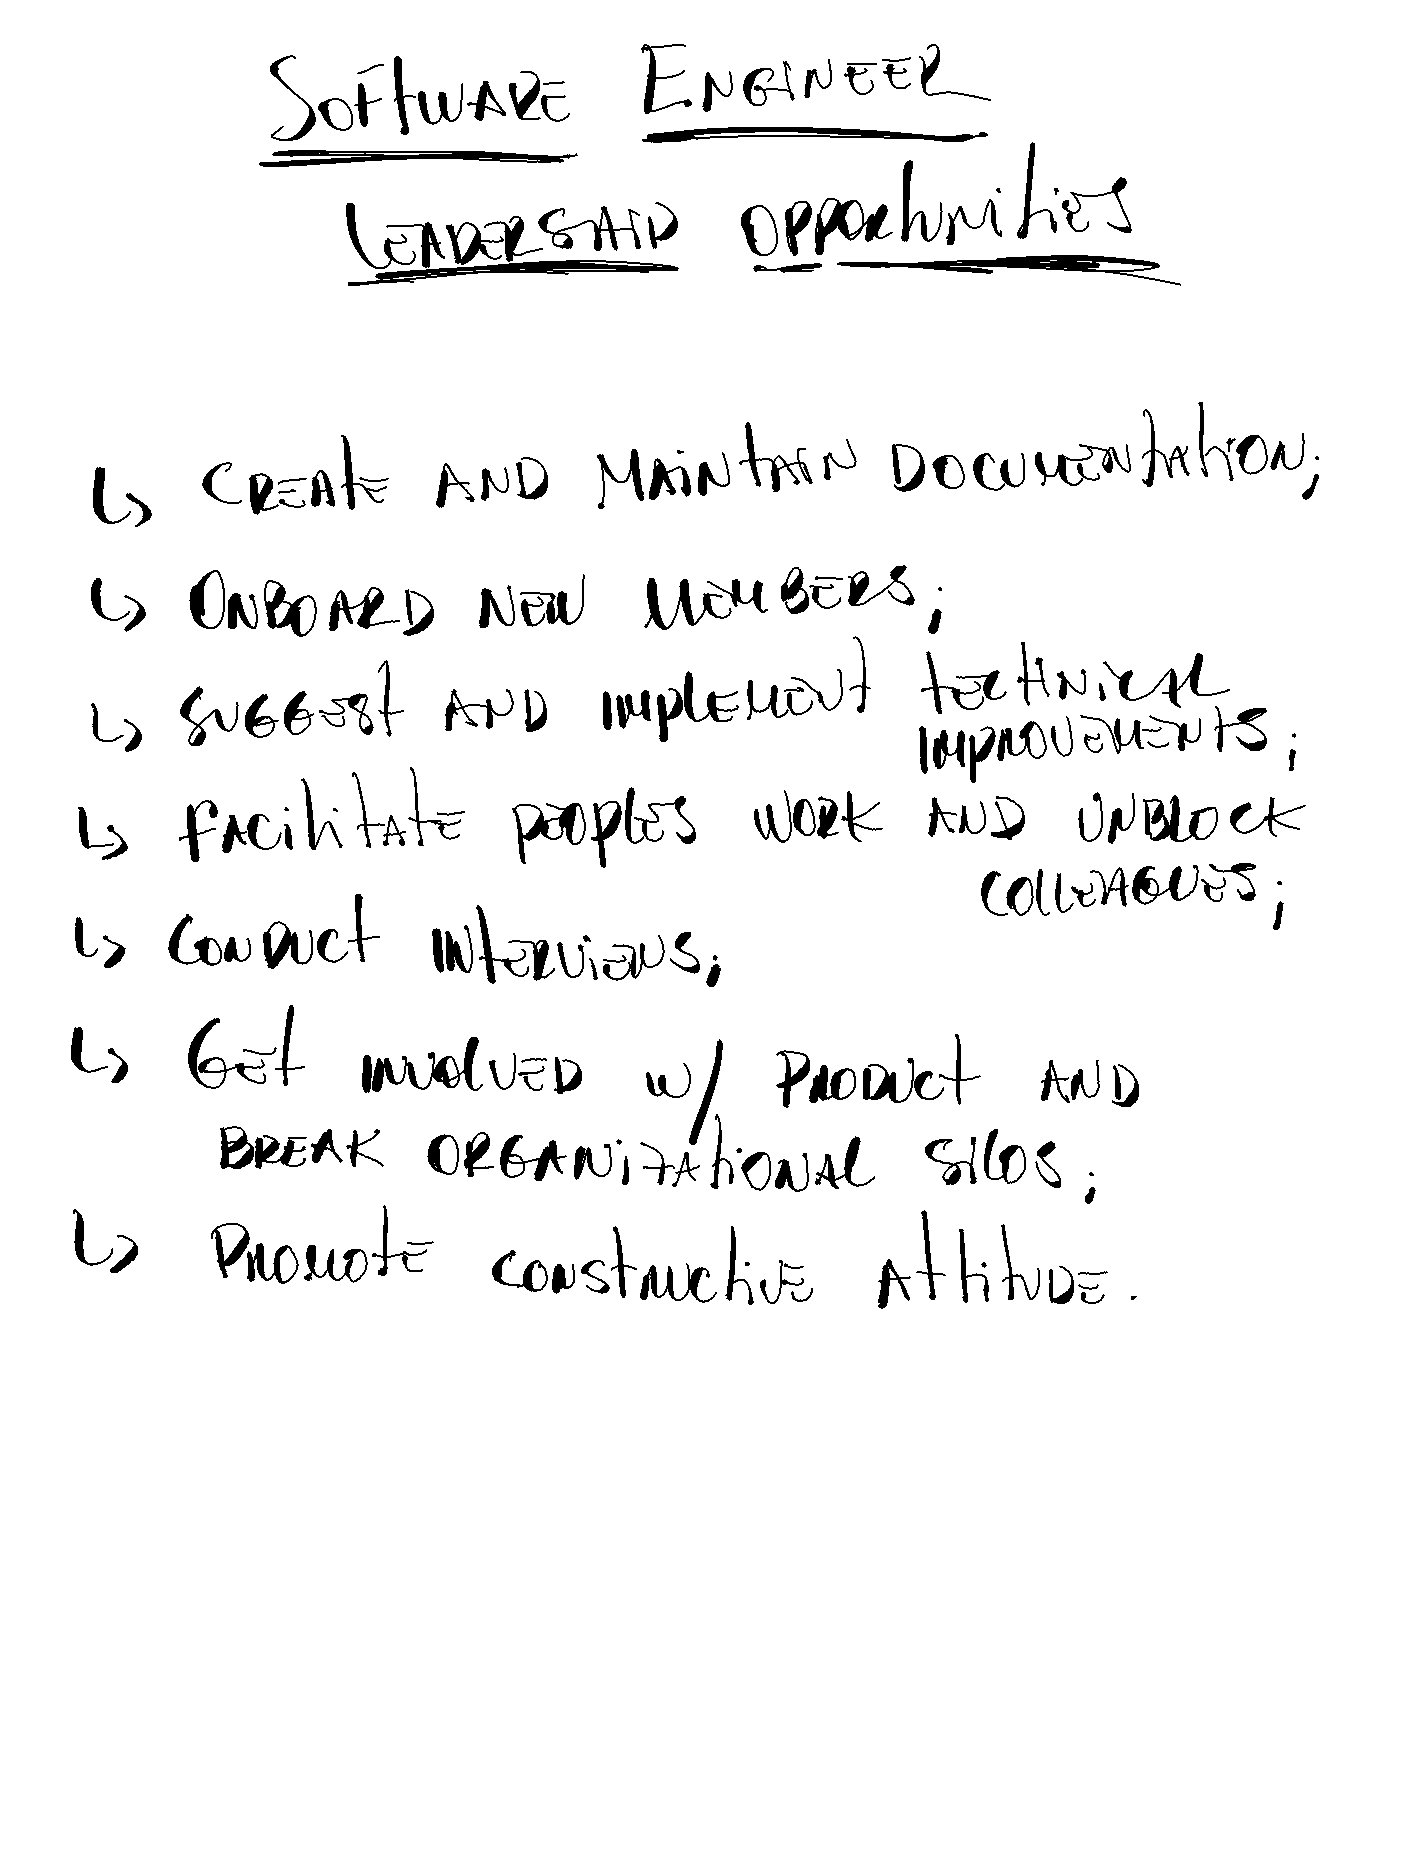 Software Engineer
Leadership Opportunities
↳ Create and maintain documentation;
↳ Onboard new members;
↳ Suggest and implement technical
improvements;
↳ Facilitate peoples work and unblock
colleagues;
↳ Conduct interviews;
↳ Get involved w/ Product and
break organizational silos;
↳ Promote constructive attitude.